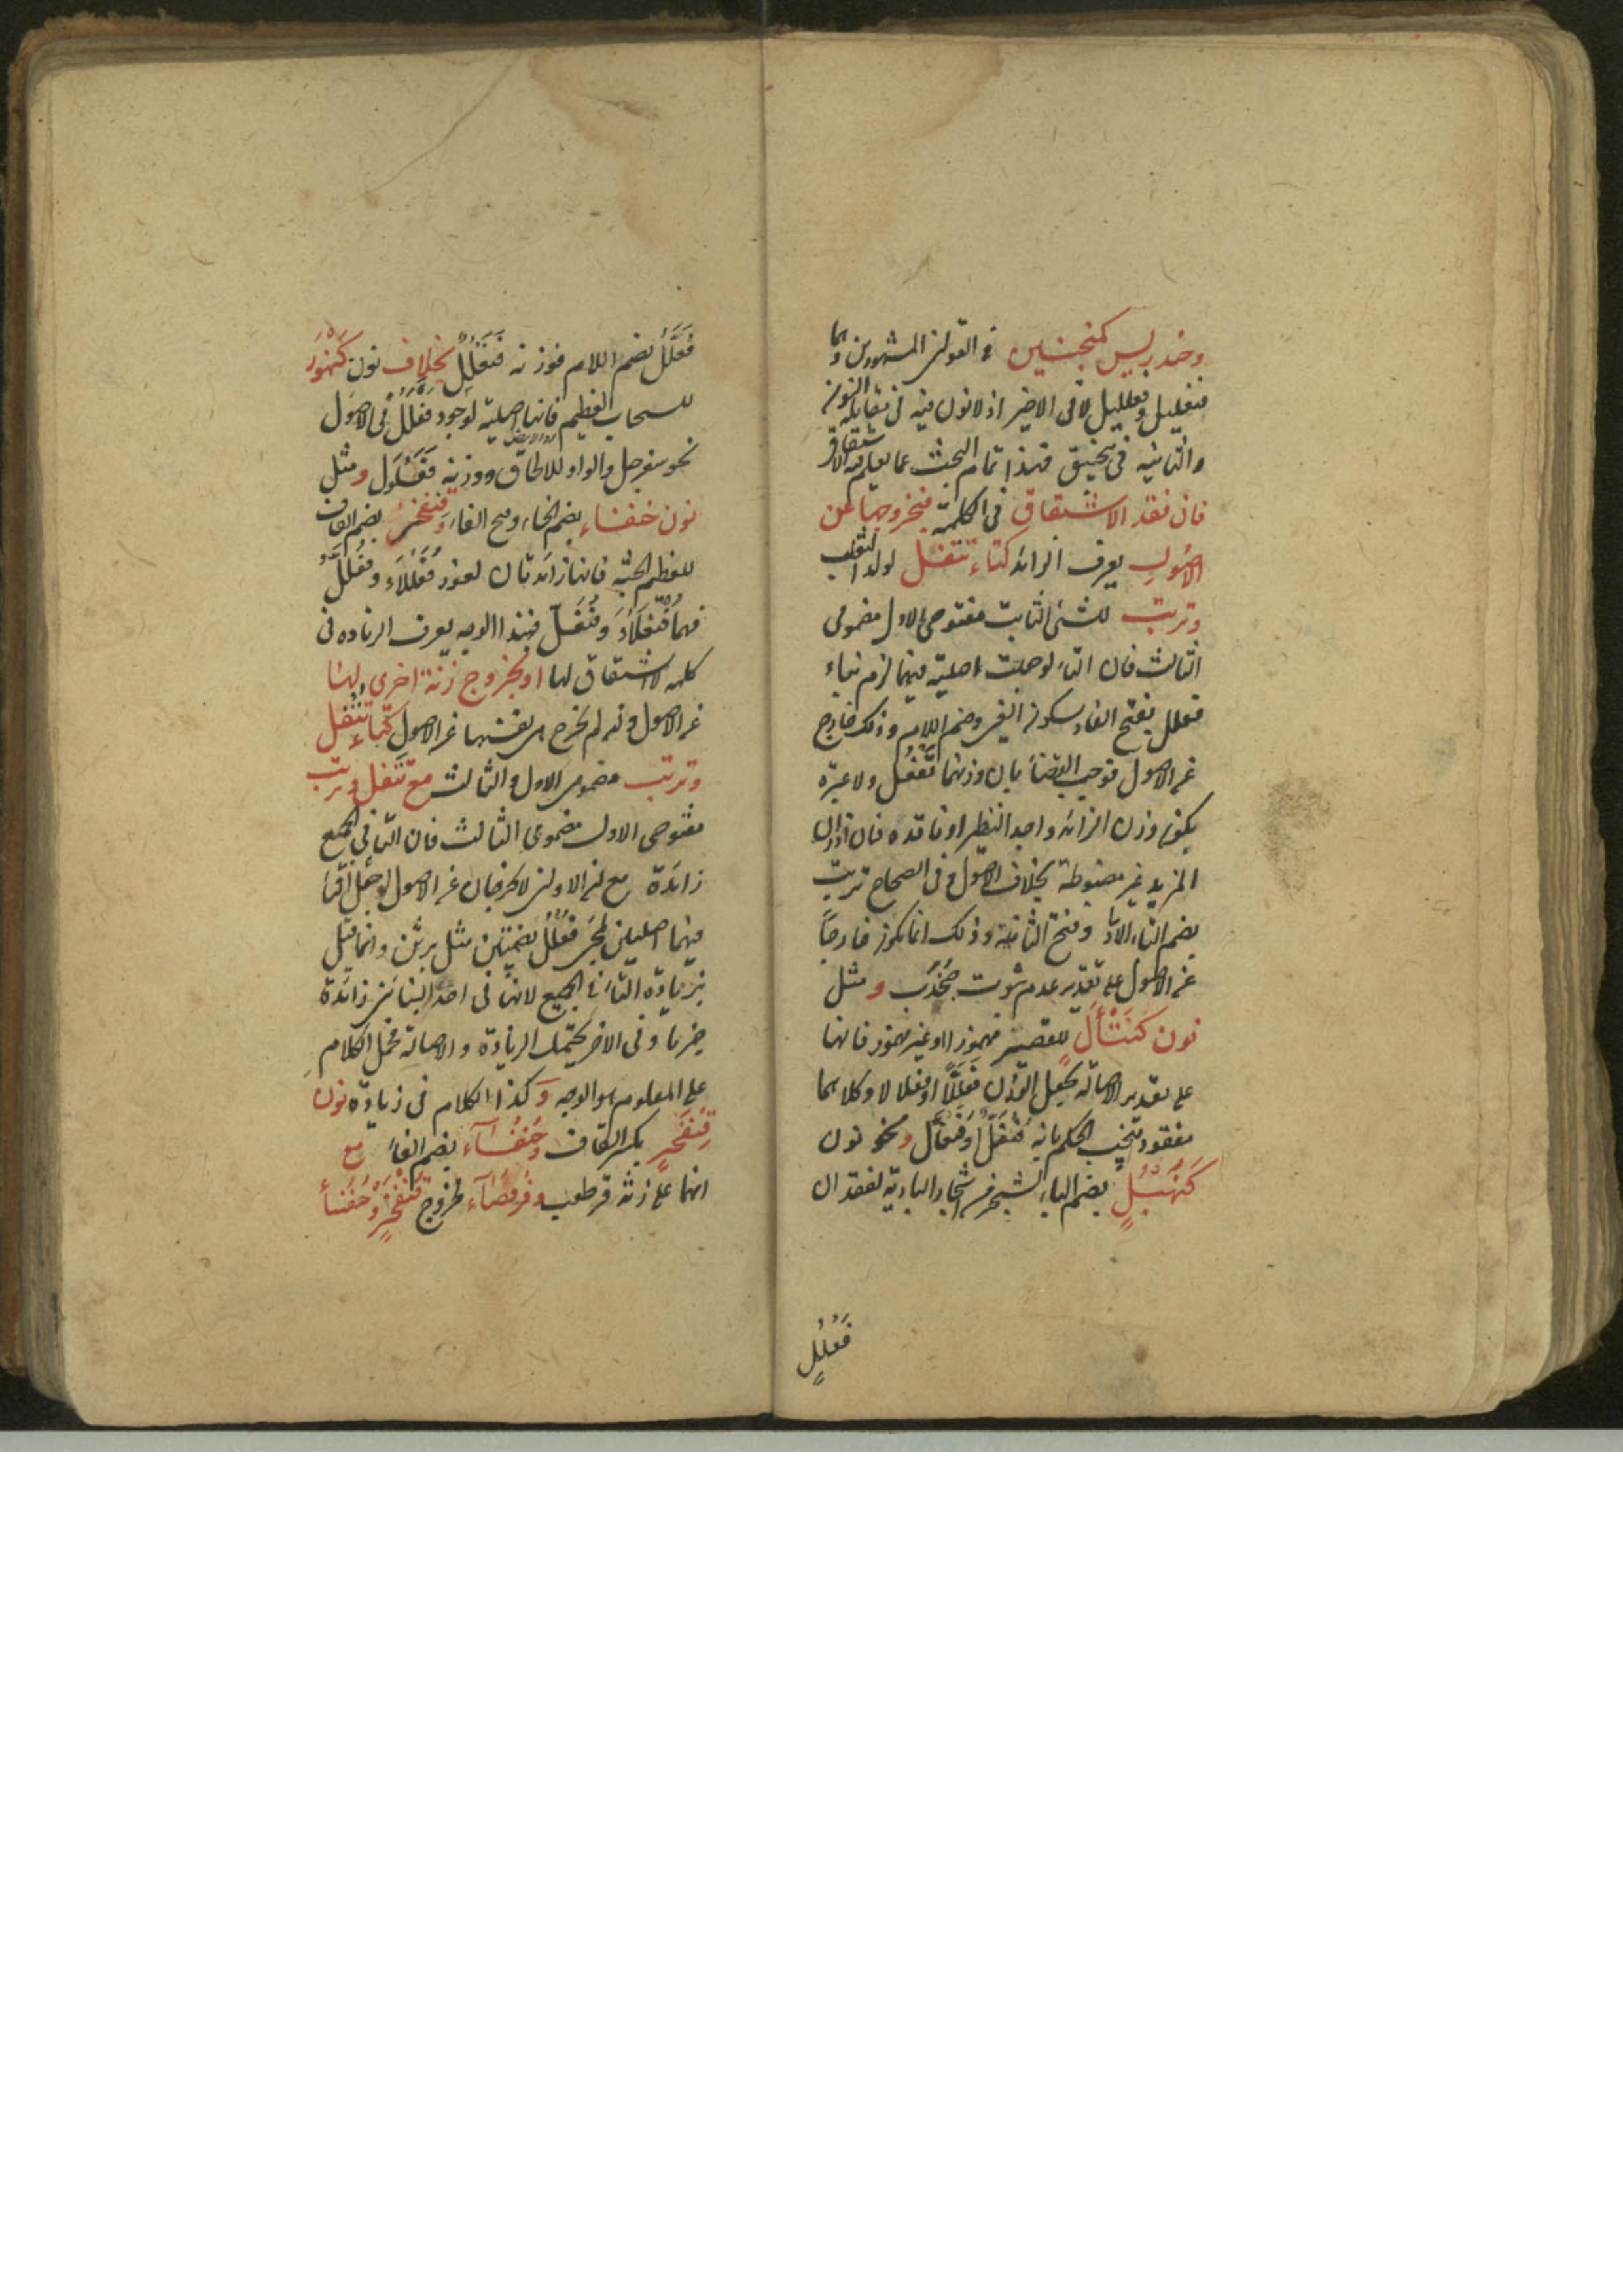 وخندريس كمنجنين في القولين المشهورين وهما
فنعليل وفعلليل لا في الاخير اذ لا نون فيه في مقابلة النون
الثانية في منجنيق فهذا تمام البحث عما يعلم فيه الاشتقاق
فان فقد الاشتقاق في الكلمة فبخروجها عن
الاصول يعرف الزائد كتاء تتفل لولد الثعلب
وترتب للشئ الثابت مفتوحي الاول مضمومي
الثالث فان التاء لو جعلت اصلية فيهما لزم بناء
فعلل بفتح الفاء وسكون العين وضم اللام وذلك خارج
عن الاصول فوجب القضاء بان وزنهما تفعل ولا عبرة
بكون وزن الزائد واجد النظير او فاقده فان اوزان
المزيد غير مضبوطة بخلاف الاصول وفي الصحاح ترتب
بضم التاء الاولى وفتح الثانية وذلك انما يكون خارجا
عن الاصول على تقدير عدم ثبوت جخدب ومثل
نون كنتأل للقصير مهموزا او غير مهموز فانها
على تقدير الاصالة يجعل الوزن فعللا او فعلالا وكلاهما
مفقود فيجب الحكم بانه فنعل او فنعال ونحو نون
كنهبل بضم الباء لشجر من اشجار البادية لفقدان
فعلل
فعلل بضم اللام فوزنه فنعلل بخلاف نون كنهور
للسحاب العظيم فانها اصلية لوجود فعلل في الاصول
نحو سفرجل والواو للالحاق ووزنه فعلول ومثل
نون خنفساء بضم الخاء وفتح الفاء وقنفخر بضم القاف
للعظيم الجثة فانها زائدتان لعوز فعللاء وفعلل
فهما فنعلاء وفنعل فبهذا الوجه يعرف الزيادة في
كلمة لا اشتقاق لها او بخروج زنة اخرى لها
عن الاصول وان لم تخرج هي بنفسها عن الاصول كتاء تتفل
وترتب مضمومي الاول والثالث مع تتفل وترتب
مفتوحي الاول مضمومي الثالث فان التاء في الجميع
زائدة مع ان الاولين لا يخرجان عن الاصول لو جعل التاء
فيهما اصليين لمجئ فعلل بضمتين مثل برثن وانما قيل
بزيادة التاء في الجميع لانها في احد البنائين زائدة
جزما وفي الاخر يحتمل الزيادة والاصالة فحمل الكلام
على المعلوم هو الوجه وكذا الكلام في زيادة نون
قنفخر بكسر القاف وخنفساء بضم الفاء مع
انهما على زنة قرطعب وقرفصاء لخروج قنفخر وخنفساء